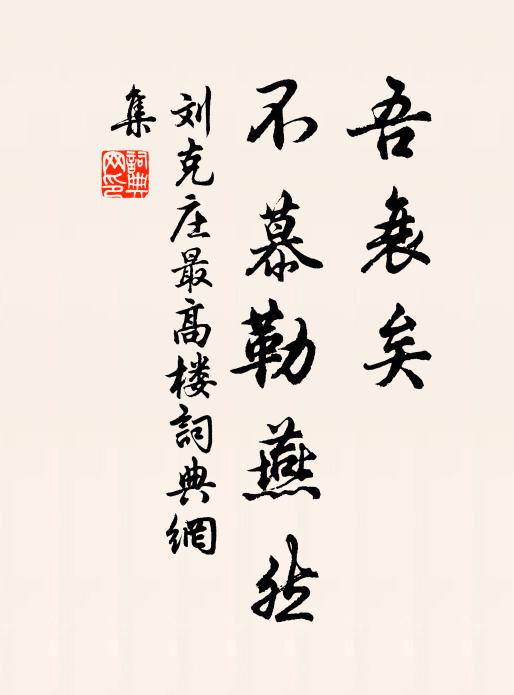 吾衰矣
不慕勒燕然
刘克庄最高楼詞典網
集
詞典
网印